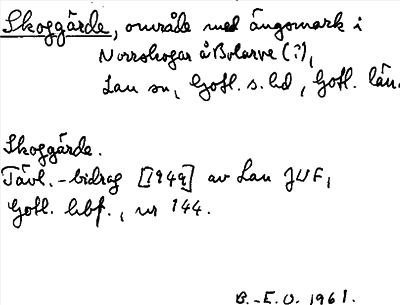 Skoggärde, område med ängsmark i
Norrhagar å Bolarve (?),
Lau sn, Gotl. s. hd, Gotl. län.
Skoggärde.
Tävl.-bidrag [1949] av Lau JUF,
Gotl. hbf., nr 144.
B.-E.O. 1961.